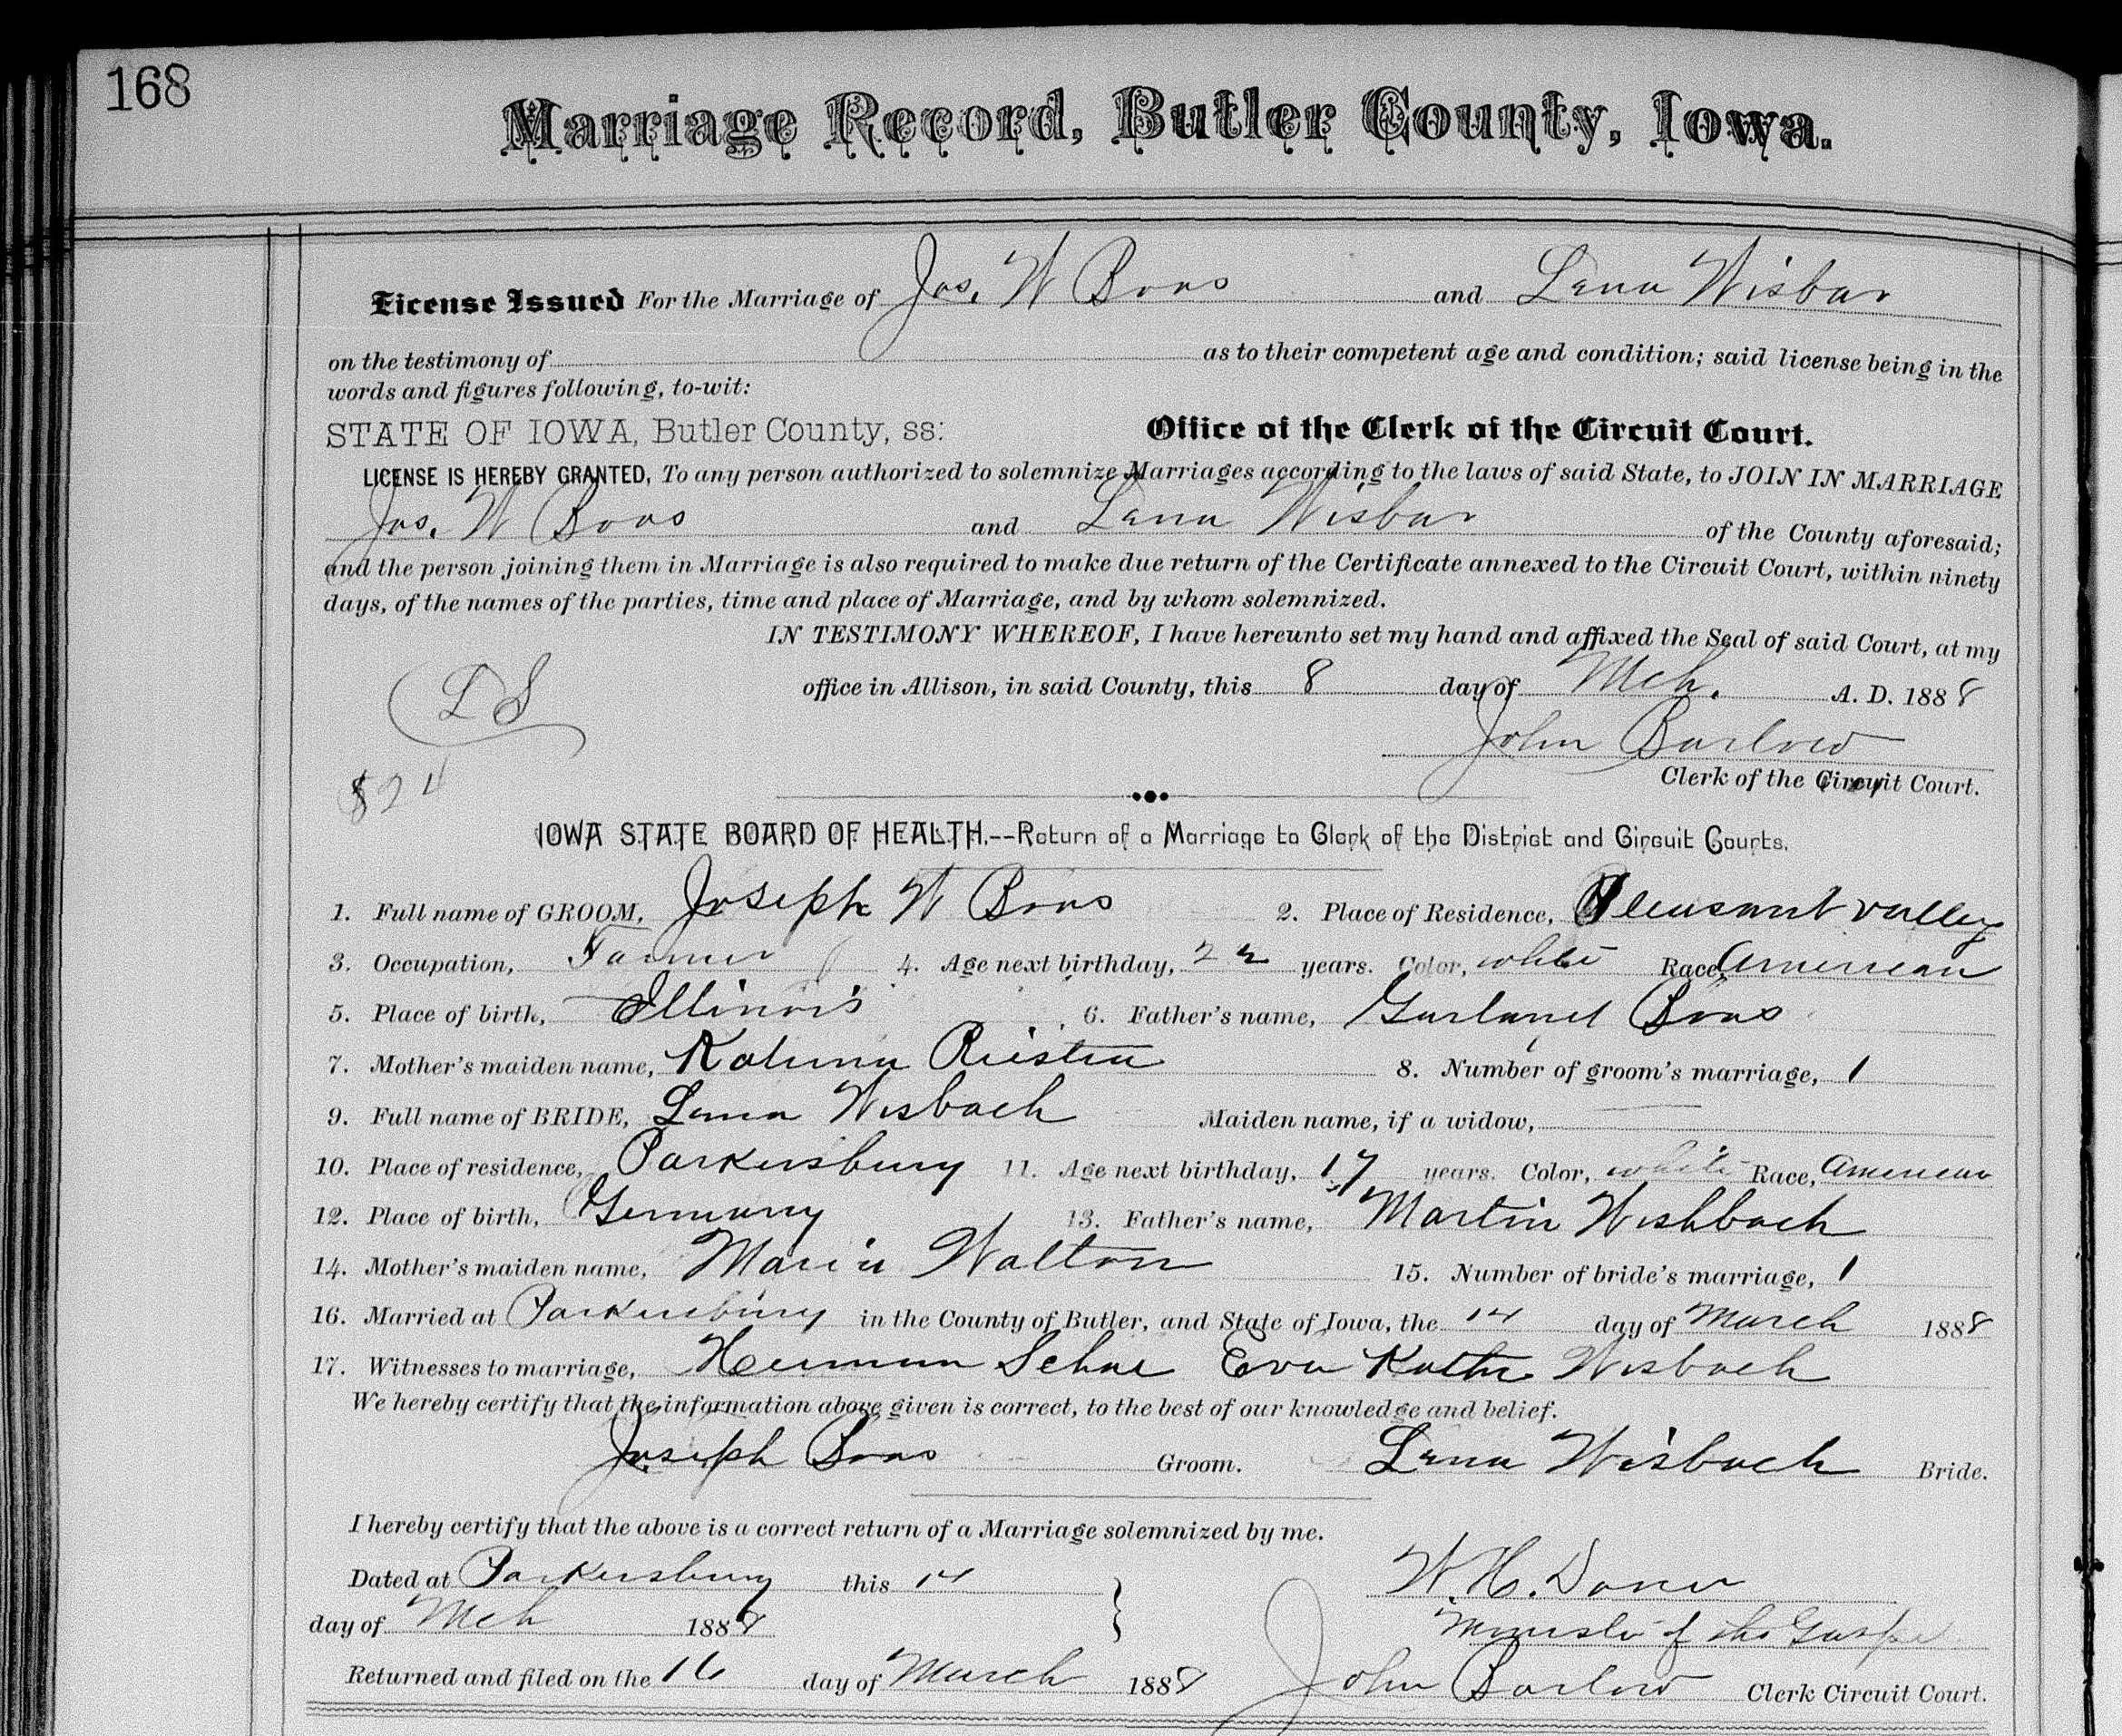 168
Marriage Record, Butler County, Iowa.
License Issued For the Marriage of Jos. W Boos and Lena Wisbar
on the testimony of as to their competent age and condition; said license being in the
words and figures following, to-wit:
STATE OF IOWA, Butler County, ss: Office of the Clerk of the Circuit Court.
LICENSE IS HEREBY GRANTED, To any person authorized to solemnize Marriages according to the laws of said State, to JOIN IN MARRIAGE
Jos. W Boos and Lena Wisbar of the County aforesaid;
and the person joining them in Marriage is also required to make due return of the Certificate annexed to the Circuit Court, within ninety
days, of the names of the parties, time and place of Marriage, and by whom solemnized.
IN TESTIMONY WHEREOF, I have hereunto set my hand and affixed the Seal of said Court, at my
L S office in Allison, in said County, this 8 day of Mch. A. D. 1888
John Barlow
Clerk of the Circuit Court.
IOWA STATE BOARD OF HEALTH.--Return of a Marriage to Clerk of the District and Circuit Courts.
1. Full name of GROOM, Joseph W Boos 2. Place of Residence, Pleasant valley
3. Occupation, Farmer 4. Age next birthday, 22 years. Color, white Race, American
5. Place of birth, Illinois 6. Father's name, Garland Boos
7. Mother's maiden name, 8. Number of groom's marriage, 1
9. Full name of BRIDE, Lena Wisbach Maiden name, if a widow,
10. Place of residence, Parkersburg 11. Age next birthday, 17 years. Color, white Race, American
12. Place of birth, Germany 13. Father's name, Martin Wishbach
14. Mother's maiden name, Maria Walton 15. Number of bride's marriage, 1
16. Married at Parkersburg in the County of Butler, and State of Iowa, the 14 day of March 1888
17. Witnesses to marriage, Herman Eva Wisbach
We hereby certify that the information above given is correct, to the best of our knowledge and belief.
Joseph Boos Groom. Lena Wisbach Bride.
I hereby certify that the above is a correct return of a Marriage solemnized by me.
Dated at Parkersburg this 14 W. H.
day of Mch 1888 Minister of the Gospel
Returned and filed on the 16 day of March 1888 John Barlow Clerk Circuit Court.